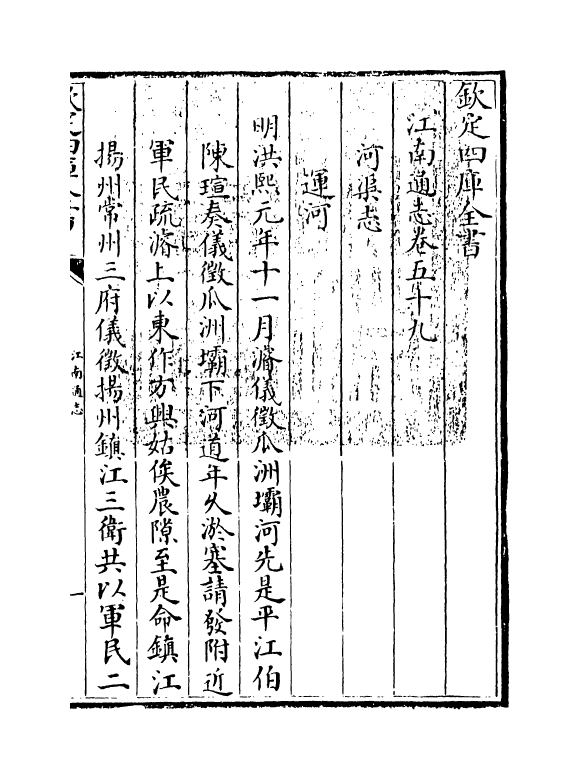 欽定四庫全書
江南通志卷五十九
河渠志
運河
明洪熙元年十一月濬儀徵瓜洲壩河先是平江伯
陳瑄奏儀徵瓜洲壩下河道年久淤塞請發附近
軍民疏濬上以東作方興姑俟農隙至是命鎮江
揚州常州三府儀徵揚州鎮江三衛共以軍民二
欽定四庫全書
江南通志
一